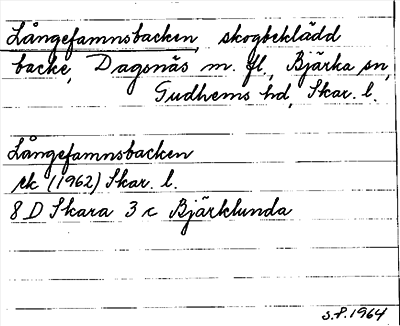 Långefamnsbacken, skogbeklädd
backe, Dagsnäs m. fl., Bjärka sn,
Gudhems hd, Skar. l.
Långefamnsbacken
ek (1962) Skar. l.
8 D Skara 3 c Bjärklunda
S.P. 1964